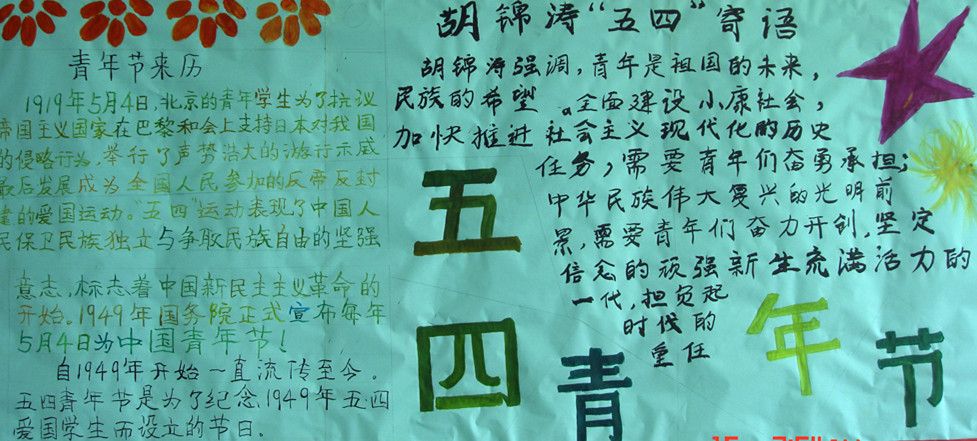 青年节来历
1919年5月4日,北京的青年学生为了抗议
帝国主义国家在巴黎和会上支持日本对我国
的侵略行为,举行了声势浩大的游行示威
最后发展成为全国人民参加的反帝反封
建的爱国运动。"五四"运动表现了中国人
民保卫民族独立与争取民族自由的坚强
意志,标志着中国新民主主义革命的
开始。1949年国务院正式宣布每年
5月4日为中国青年节!
自1949年开始一直流传至今。
五四青年节是为了纪念1949年五四
爱国学生而设立的节日。
胡锦涛"五四"寄语
胡锦涛强调,青年是祖国的未来,
民族的希望。全面建设小康社会,
加快推进社会主义现代化的历史
任务,需要青年们奋勇承担;
中华民族伟大复兴的光明前
景,需要青年们奋力开创,坚定
信念的顽强新生充满活力的
一代,担负起
时代的
重任
五
四
青年节